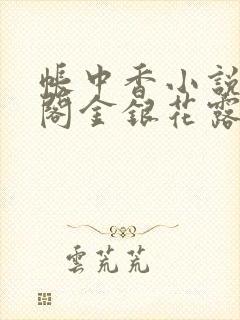 帳中香小說
閣金銀花露
雲荒荒